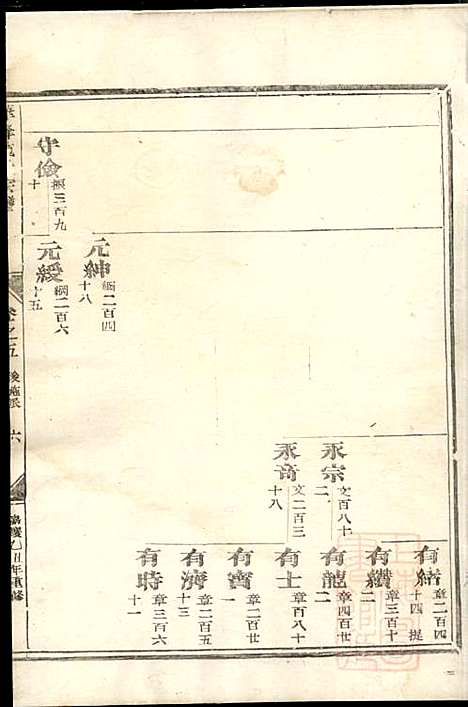 有緒 章二百四十四 提
有纘 章三百十二
有龍 章四百廿二
有士 章百八十
有實 章二百廿一
有濟 章二百五十三
有時 章三百六十一
永宗 文百八十二
永奇 文二百三十八
元紳 綱二百四十八
元綬 綱二百六十五
守儉 振三百九十
卷之五 後施張 六
嘉慶乙丑年重修